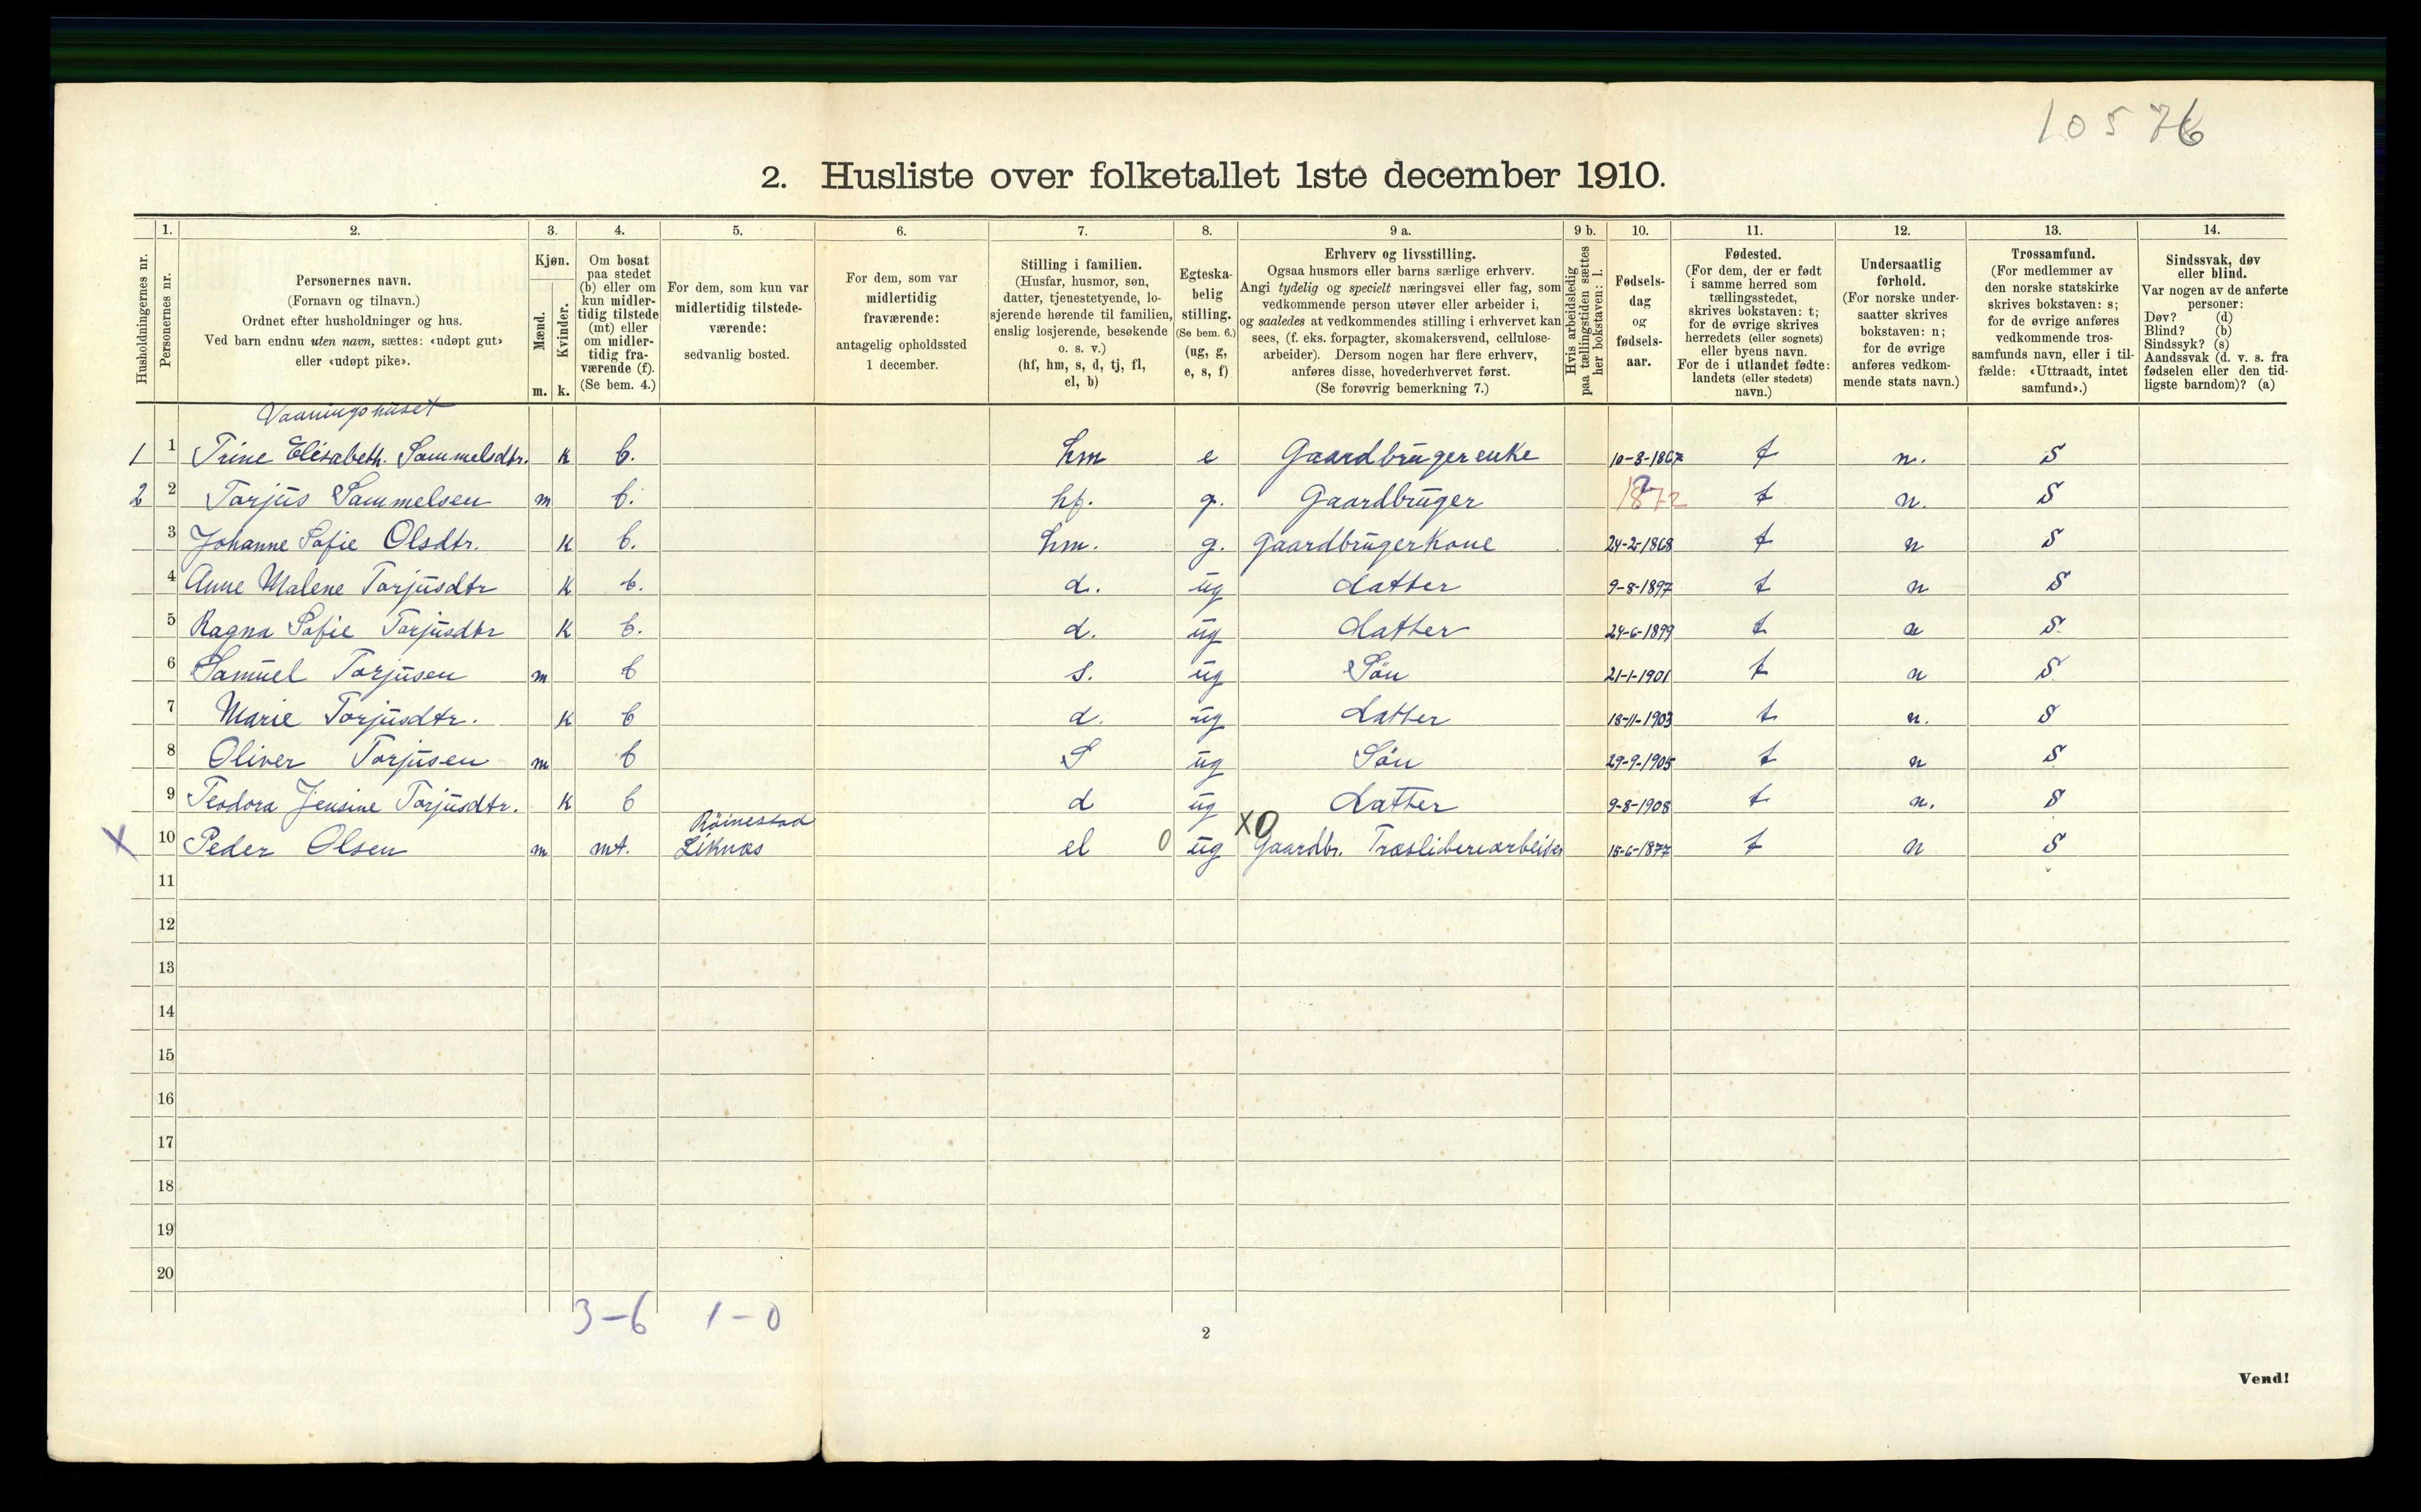 10576
2. Husliste over folketallet 1ste december 1910.
Husholdningernes nr.
1.
Personernes nr.
2.
Personernes navn.
(Fornavn og tilnavn.)
Ordnet efter husholdninger og hus.
Ved barn endnu uten navn, sættes: «udøpt gut»
eller «udøpt pike».
3.
Kjøn.
Mænd.
Kvinder.
m. k.
4.
Om bosat
paa stedet
(b) eller om
kun midler-
tidig tilstede
(mt) eller
om midler-
tidig fra-
værende (f).
(Se bem. 4.)
5.
For dem, som kun var
midlertidig tilstede-
værende:
sedvanlig bosted.
6.
For dem, som var
midlertidig
fraværende:
antagelig opholdssted
1 december.
7.
Stilling i familien.
(Husfar, husmor, søn,
datter, tjenestetyende, lo-
sjerende hørende til familien,
enslig losjerende, besøkende
o. s. v.)
(hf, hm, s, d, tj, fl,
el, b)
8.
Egteska-
belig
stilling.
(Se bem. 6.)
(ug, g,
e, s, f)
9 a.
Erhverv og livsstilling.
Ogsaa husmors eller barns særlige erhverv.
Angi tydelig og specielt næringsvei eller fag, som
vedkommende person utøver eller arbeider i,
og saaledes at vedkommendes stilling i erhvervet kan
sees, (f. eks. forpagter, skomakersvend, cellulose-
arbeider). Dersom nogen har flere erhverv,
anføres disse, hovederhvervet først.
(Se forøvrig bemerkning 7.)
9 b.
Hvis arbeidsledig
paa tællingstiden sættes
her bokstaven: l.
10.
Fødsels-
dag
og
fødsels-
aar.
11.
Fødested.
(For dem, der er født
i samme herred som
tællingsstedet,
skrives bokstaven: t;
for de øvrige skrives
herredets (eller sognets)
eller byens navn.
For de i utlandet fødte:
landets (eller stedets)
navn.)
12.
Undersaatlig
forhold.
(For norske under-
saatter skrives
bokstaven: n;
for de øvrige
anføres vedkom-
mende stats navn.)
13.
Trossamfund.
(For medlemmer av
den norske statskirke
skrives bokstaven: s;
for de øvrige anføres
vedkommende tros-
samfunds navn, eller i til-
fælde: «Uttraadt, intet
samfund».)
14.
Sindssvak, døv
eller blind.
Var nogen av de anførte
personer:
Døv? (d)
Blind? (b)
Sindssyk? (s)
Aandssvak (d. v. s. fra
fødselen eller den tid-
ligste barndom)? (a)
Vaaningshuset
1 1 Trine Elisabeth Sammelsdtr. k b. hm e Gaardbrugerenke 10-3-1867 t n. S
2 2 Torjus Sammelsen m b. hf. g. Gaardbruger 1872 t n. S
3 Johanne Sofie Olsdtr. k b. hm. g. Gaardbrugerkone 24-2-1868 t n S
4 Anne Malene Torjusdtr k b. d. ug datter 9-8-1897 t n S
5 Ragna Sofie Torjusdtr k b. d. ug datter 24-6-1899 t n S
6 Samuel Torjusen m b s. ug Søn 21-1-1901 t n S
7 Marie Torjusdtr. k b d. ug datter 18-11-1903 t n. S
8 Oliver Torjusen m b S ug Søn 29-9-1905 t n S
9 Teodora Jensine Torjusdtr. k b d ug datter 9-8-1908 t n. S
Röinestad X0
X 10 Peder Olsen m mt. Liknæs el 0 ug Gaardbr. Træsliberiarbeider 15-6-1877 t n S
11
12
13
14
15
16
17
18
19
20
3-6 1-0
2
Vend!